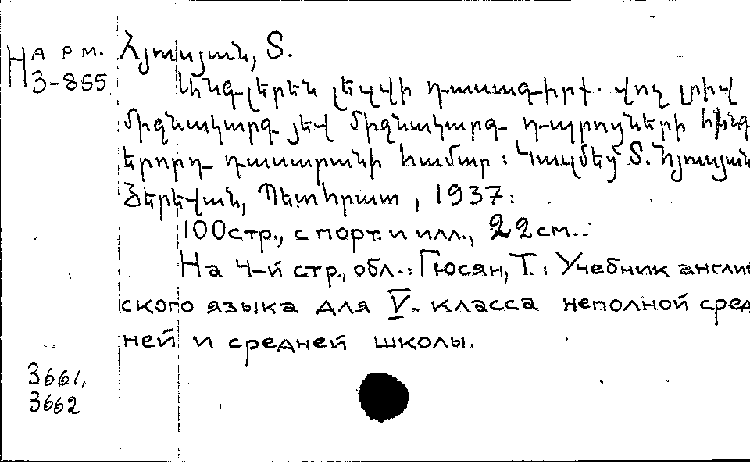 На рм.
3-855
Հյուսյան, Տ.
Անգլերեն լեզվի դասագիրք. վոչ լրիվ
միջնակարգ յեվ միջնակարգ դպրոցների հինգ
երորդ դասարանի համար: Կազմեց Տ. Հյուսյան
Յերեվան, Պետհրատ, 1937:
100 стр., с порт. и илл., 22 см.
На 4-й стр., обл.: Гюсян, Т.: Учебник англий
ского языка для V- класса неполной сред
ней и средней школы.
3661,
3662